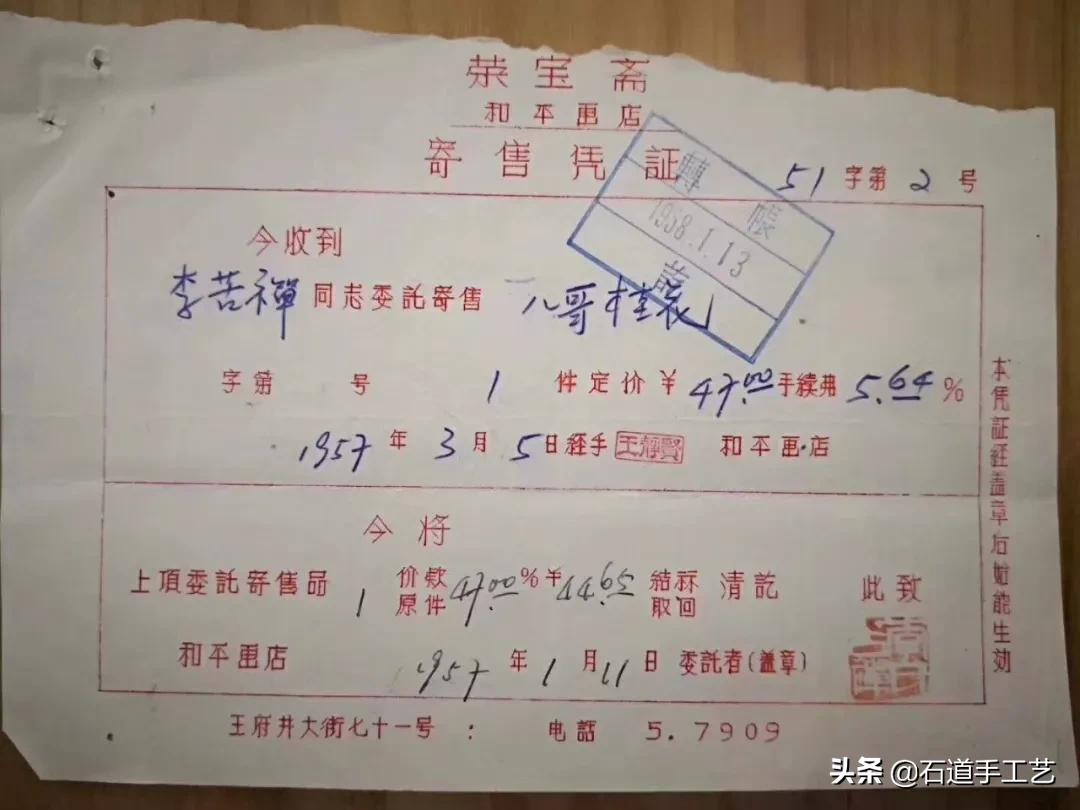 荣宝斋
和平画店
寄售凭証
51字第2号
轉帳
1958.1.13
今收到
李苦禅同志委託寄售 八哥
字第 号 1 件定价¥47.00手续费5.64%
1957年3月5日経手 王靜賢 和平画店
今将
上項委託寄售品 1 价款 原件 47.00%¥44.65 結算 取回 清訖 此致
和平画店 1957年1月11日 委託者(盖章)
本凭証経盖章后始能生効
王府井大街七十一号: 电話 5.7909
头条 @石道手工艺